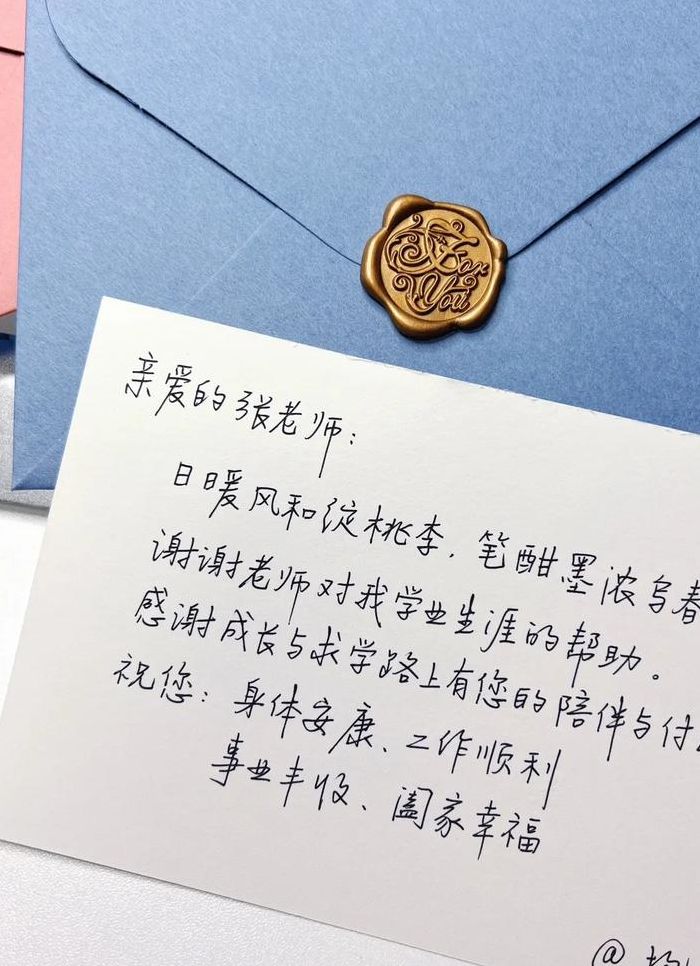 For
You
亲爱的张老师：
日暖风和绽桃李，笔酣墨浓写春
谢谢老师对我学业生涯的帮助。
感谢成长与求学路上有您的陪伴与付
祝您：身体安康、工作顺利
事业丰收、阖家幸福
@